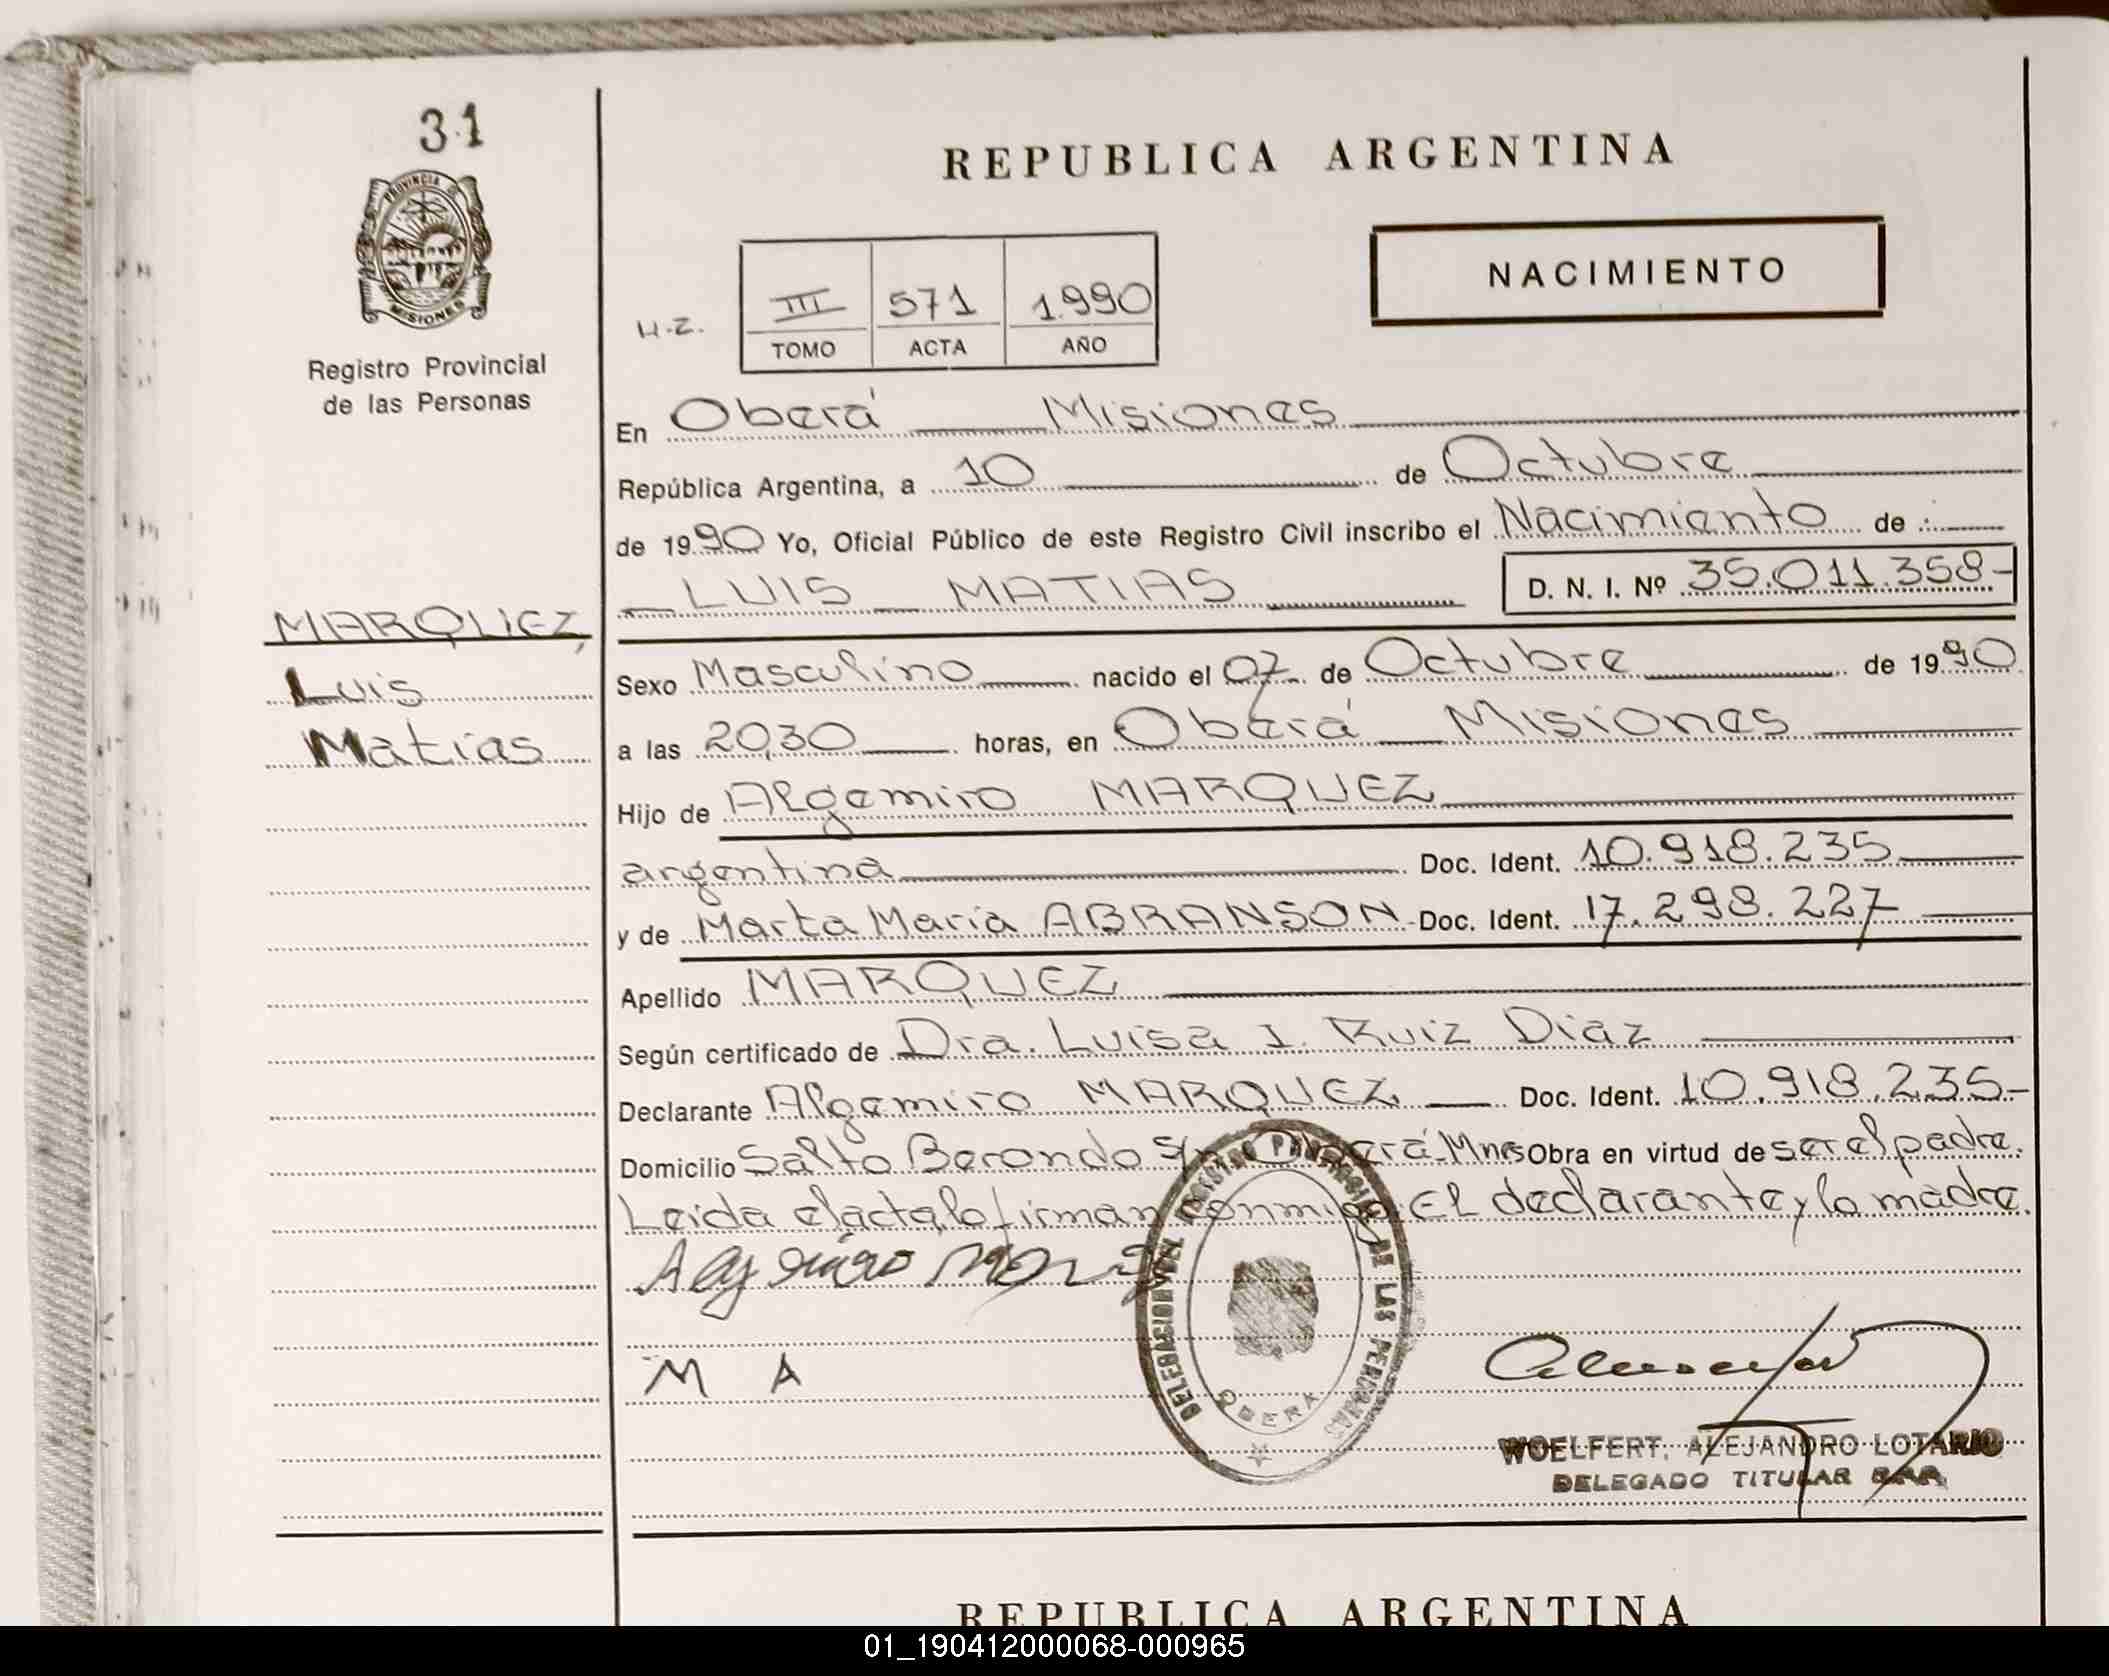 31
PROVINCIA DE
MISIONES
Registro Provincial
de las Personas
MARQUEZ,
Luis
Matías
REPUBLICA ARGENTINA
NACIMIENTO
H.Z.
III 571 1.990
TOMO ACTA AÑO
En Oberá Misiones
República Argentina, a 10 de Octubre
de 1990 Yo, Oficial Público de este Registro Civil inscribo el Nacimiento de :
LUIS MATIAS D. N. I. Nº 35.011.358-
Sexo Masculino nacido el 07 de Octubre de 1990
a las 20,30 horas, en Oberá Misiones
Hijo de Algemiro MARQUEZ
argentina Doc. Ident. 10.918.235
y de Marta María ABRANSON- Doc. Ident. 17.298.227
Apellido MARQUEZ
Según certificado de Dra. Luisa I. Ruiz Diaz
Declarante Algemiro MARQUEZ Doc. Ident. 10.918.235-
Domicilio Salto Berondo s/n Oberá-Mnes Obra en virtud de ser el padre.
Leída el acta, lo firman conmigo: El declarante y la madre.
Algemiro
M A
DELEGACION DEL REGISTRO PROVINCIAL DE LAS PERSONAS
OBERA
WOELFERT, ALEJANDRO LOTARIO
DELEGADO TITULAR
REPUBLICA ARGENTINA
01_190412000068-000965